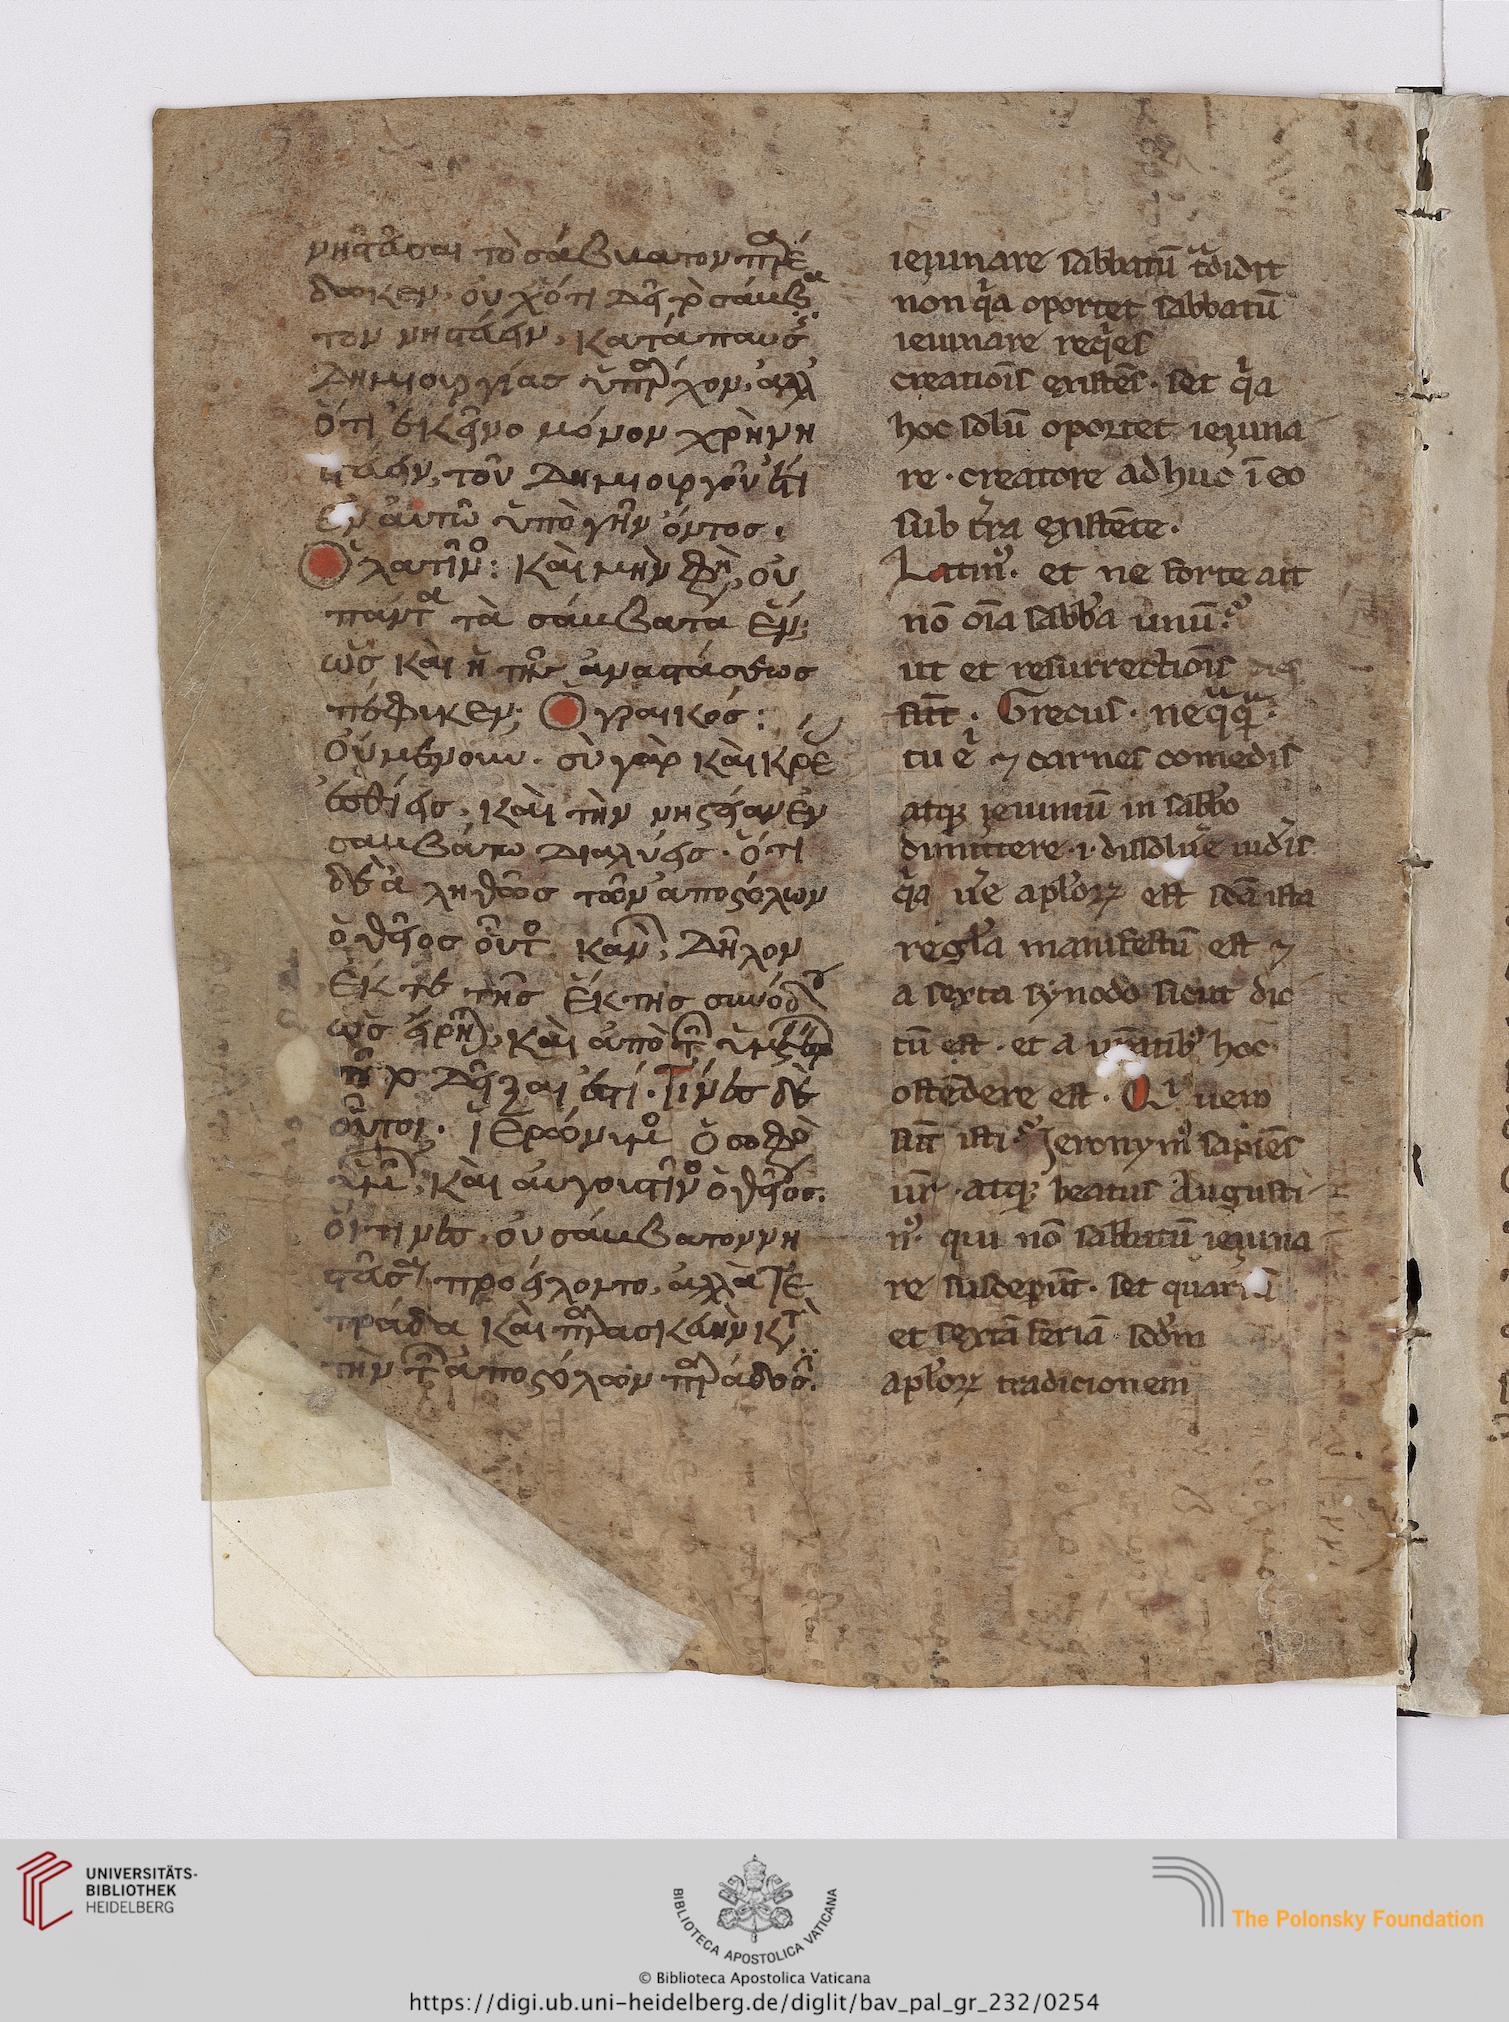 νηστεῦσαι τὸ σάββατον παρέ
δωκεν. οὐχ ὅτι δεῖ τὸ σάμβα
τον νηστεύειν, κατάπαυσις
δημιουργίας ὑπάρχον, ἀλλ'
ὅτι ἐκεῖνο μόνον χρὴ νη
στεύειν, τοῦ δημιουργοῦ ἔτι
ἐν αὐτῷ ὑπὸ γῆν ὄντος.
Ὁ λατῖνος: καὶ μὴν φησὶ, οὐ
πάντα τὰ σάμβατα ἕν;
ὡς καὶ ἡ τῆς ἀναστάσεως
πέφυκεν; Ὁ γραικός:
Οὐμενουν. σὺ γὰρ καὶ κρέα
ἐσθίεις, καὶ τὴν νηστείαν ἐν
σαμβάτῳ διαλύεις. ὅτι
δὲ ἀληθῶς τῶν ἀποστόλων
ὁ θεῖος οὗτος κανών, δῆλον
ἐκ τε τῆς ἕκτης συνόδου
ὡς εἴρηται, καὶ ἀπὸ τῶν ὑμετέρων
δεῖξαι ἔστι. Τίνες δὲ
οὗτοι; ἱερώνυμος ὁ σοφὸς
ὑμῶν, καὶ αὐγουστῖνος ὁ θεῖος.
οἵτινες, οὐ σάμβατον νη
στεῦσαι προείλοντο, ἀλλὰ τε
τράδα καὶ παρασκευὴν κατὰ
τὴν τῶν ἀποστόλων παράδοσιν.
ieiunare sabbatū tradidit
non qia oportet sabbatū
ieiunare reqies
creatiois existēs. set qia
hoc solū oportet ieiuna
re. creatore adhuc ī eo
sub terra existēte.
Latinus. et ne forte ait
nō oīa sabba unū?
ut et resurrectiois dies
sūt. Grecus. neqaqam.
tu ei ⁊ carnes comedis
atqꝫ ieiuniū in sabbo
dimittere .i. dissoluere uideris
qia uere aploꝝ est scā ista
regula manifestū est ⁊
a sexta synodo sicut dic
tū est. et a uratibꝫ hoc
ostēdere est. Qi uero
sūt isti? Jeronymus sapiēs
ur̄. atqꝫ beatus Augusti
nus. qui nō sabbatū ieiuna
re susceperūt. set quartā
et sextā feriā scdm
aploꝝ tradicionem
UNIVERSITÄTS-
BIBLIOTHEK
HEIDELBERG
BIBLIOTECA APOSTOLICA VATICANA
The Polonsky Foundation
© Biblioteca Apostolica Vaticana
https://digi.ub.uni-heidelberg.de/diglit/bav_pal_gr_232/0254